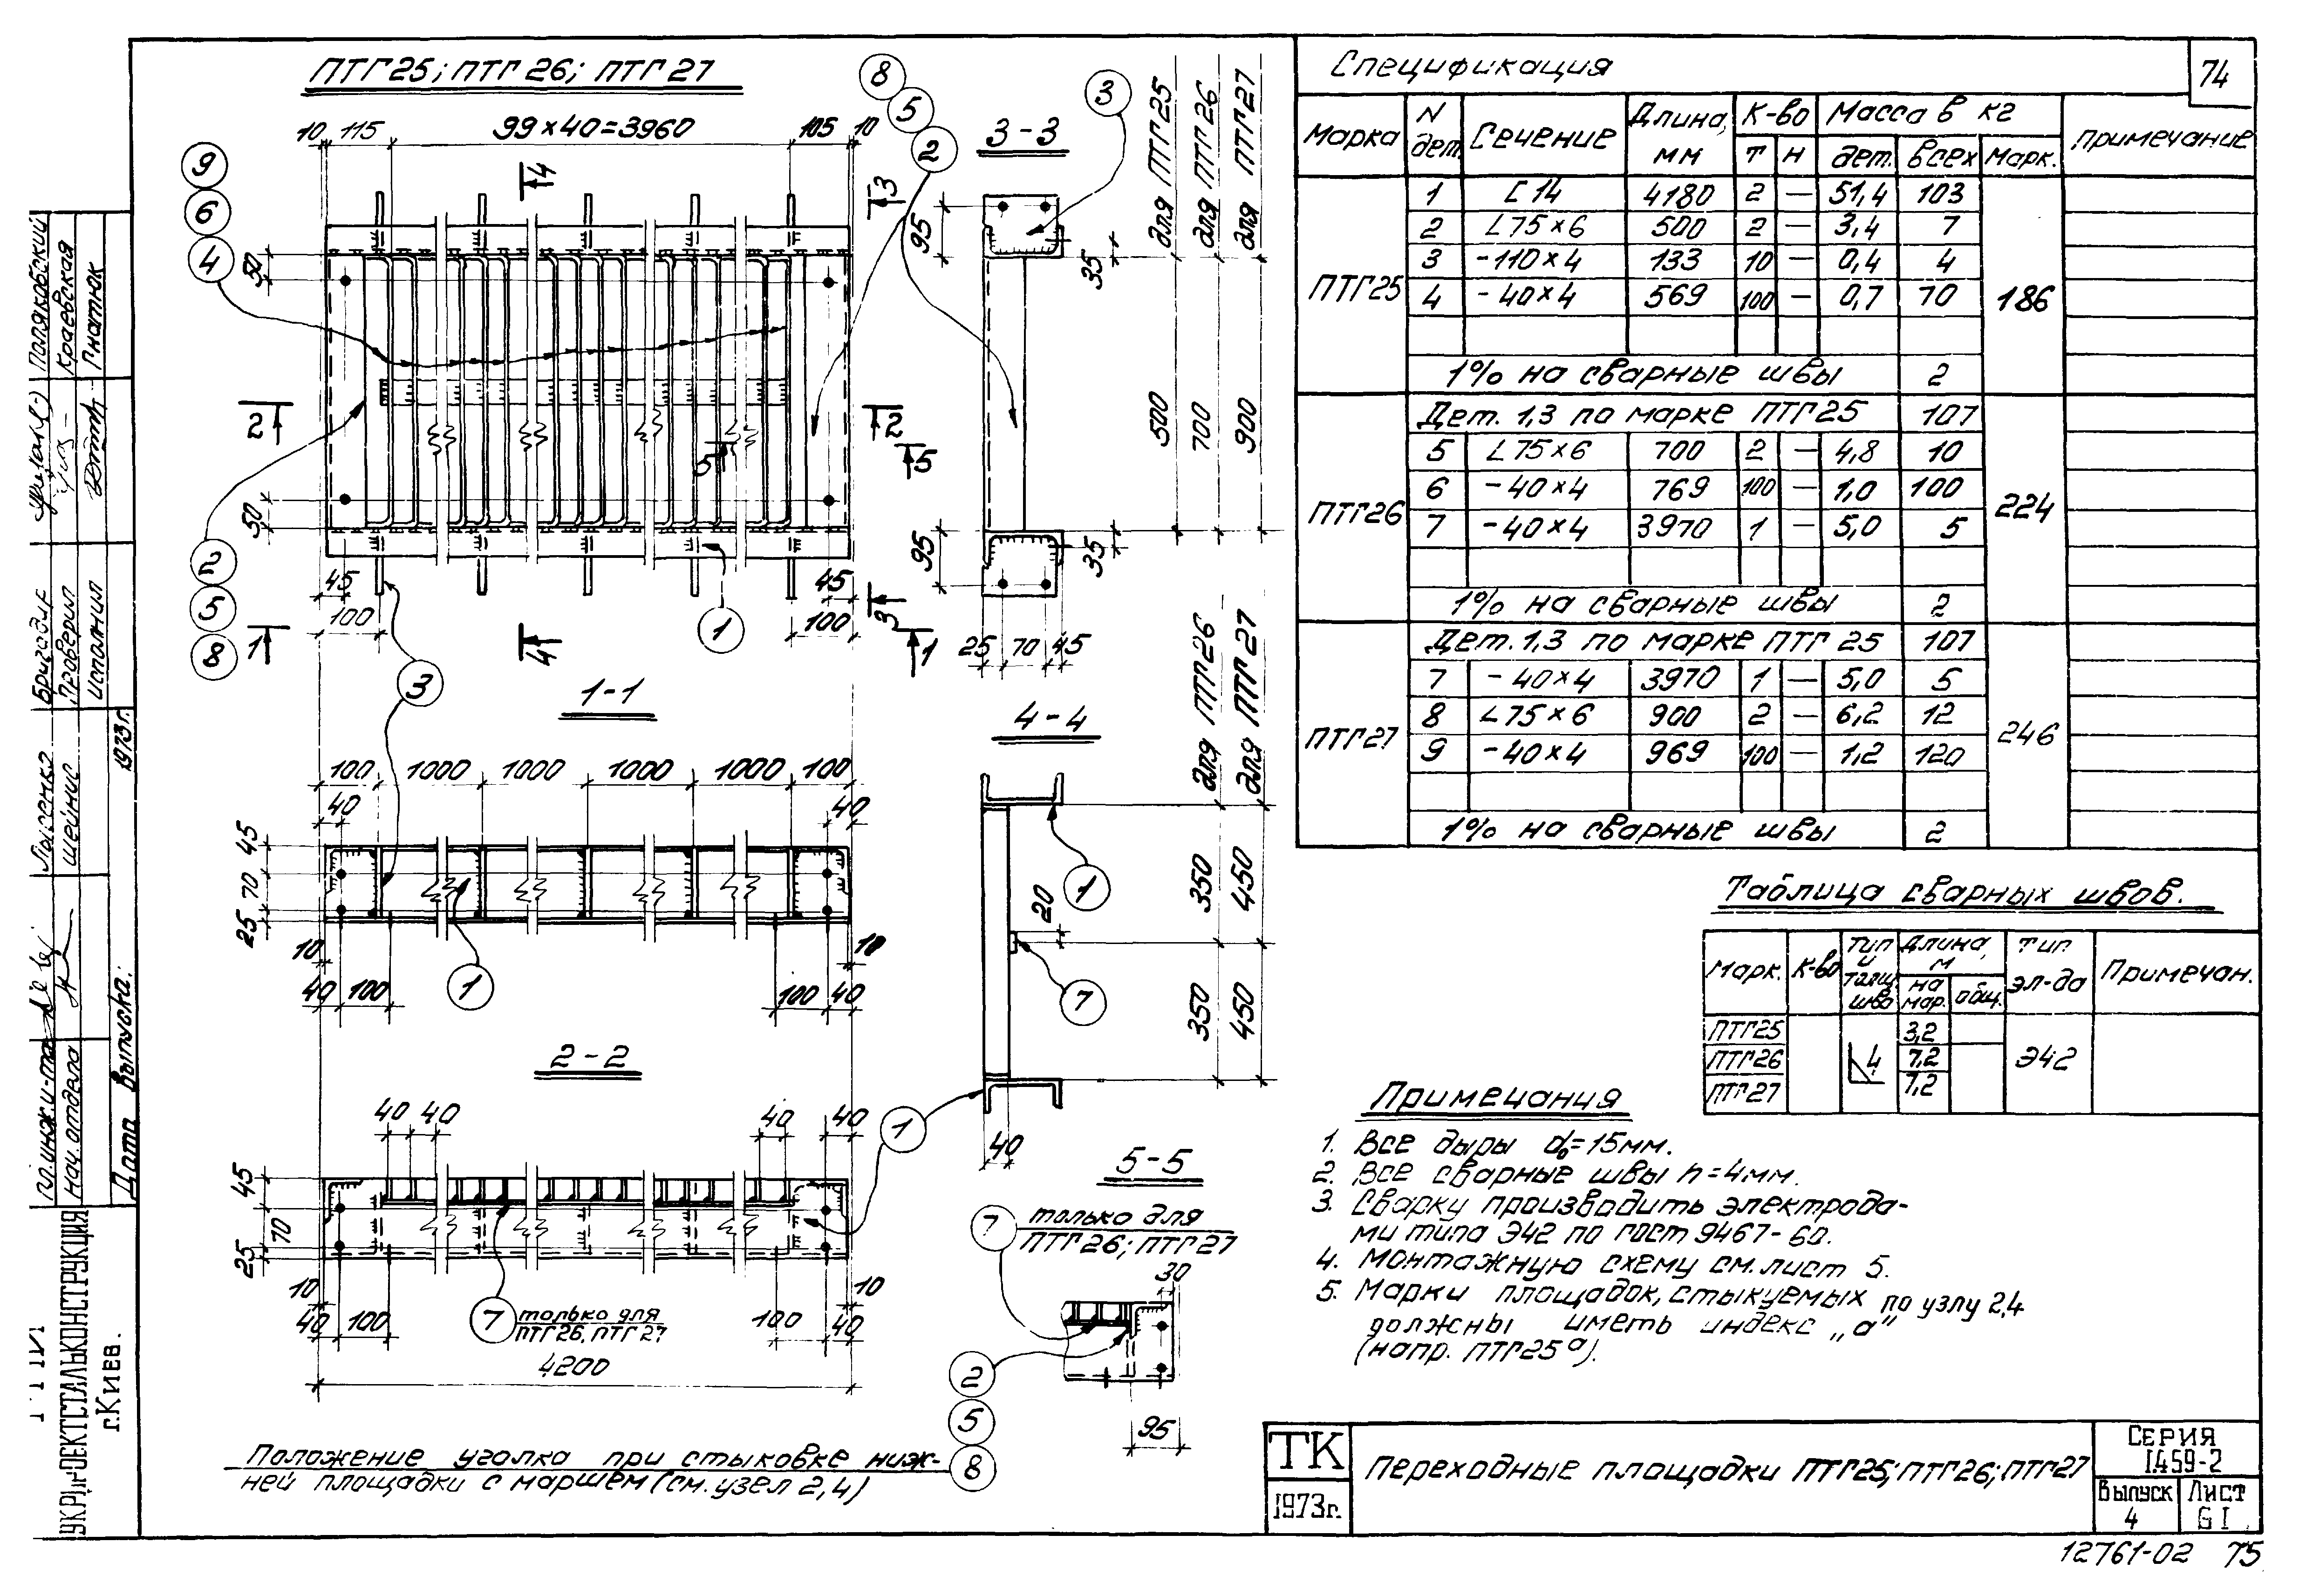 ПТГ25; ПТГ26; ПТГ27
10 115 99×40=3960 105 10
9
6
4
8
5
2
4 4
3 3
2 2
5 5
1 1
50
50
45
100
45
100
2
5
8
3
1
3-3
3
95
35
95
35
25 70 45
для ПТГ25
для ПТГ26
для ПТГ27
500
700
900
1-1
100 1000 1000 1000 1000 100
40 40
45
70
25
10 10
40 100 100 40
1
4-4
для ПТГ26
для ПТГ27
350
450
350
450
20
40
1
7
1
2-2
40 40 40 40
45
70
25
10 10
40 100 100 40
7 только для
ПТГ26, ПТГ27
4200
5-5
7 только для
ПТГ26; ПТГ27
30
95
2
5
8
Положение уголка при стыковке ниж-
ней площадки с маршем (см. узел 2,4)
Спецификация
74
Марка N дет. Сечение Длина, мм К-во Т Н Масса в кг дет. всех марк. Примечание
ПТГ25 186
1 [14 4180 2 — 51,4 103
2 L75×6 500 2 — 3,4 7
3 -110×4 133 10 — 0,4 4
4 -40×4 569 100 — 0,7 70
1% на сварные швы 2
ПТГ26 224
Дет. 1,3 по марке ПТГ25 107
5 L75×6 700 2 — 4,8 10
6 -40×4 769 100 — 1,0 100
7 -40×4 3970 1 — 5,0 5
1% на сварные швы 2
ПТГ27 246
Дет. 1,3 по марке ПТГ 25 107
7 -40×4 3970 1 — 5,0 5
8 L75×6 900 2 — 6,2 12
9 -40×4 969 100 — 1,2 120
1% на сварные швы 2
Таблица сварных швов.
Марк. К-во Тип и толщ. шва Длина, м на мар. общ. Тип эл-да Примечан.
ПТГ25 3,2
ПТГ26 4 7,2 Э42
ПТГ27 7,2
Примечания
1. Все дыры d₀=15мм.
2. Все сварные швы h=4мм.
3. Сварку производить электрода-
ми типа Э42 по гост 9467-60.
4. Монтажную схему см. лист 5.
5. Марки площадок, стыкуемых по узлу 2,4
должны иметь индекс „а"
(напр. ПТГ25ᵃ).
ТК
1973г.
Переходные площадки ПТГ25; ПТГ26; ПТГ27
Серия
1.459-2
Выпуск
4
Лист
61
12761-02 75
Поляковский
Краевская
Гнатюк
Бригадир
Проверил
Исполнил
Лысенко
Шейнис
1973г.
Гл. инж. и-та
Нач. отдела
Дата выпуска:
УКРПРОЕКТСТАЛЬКОНСТРУКЦИЯ
г.Киев.